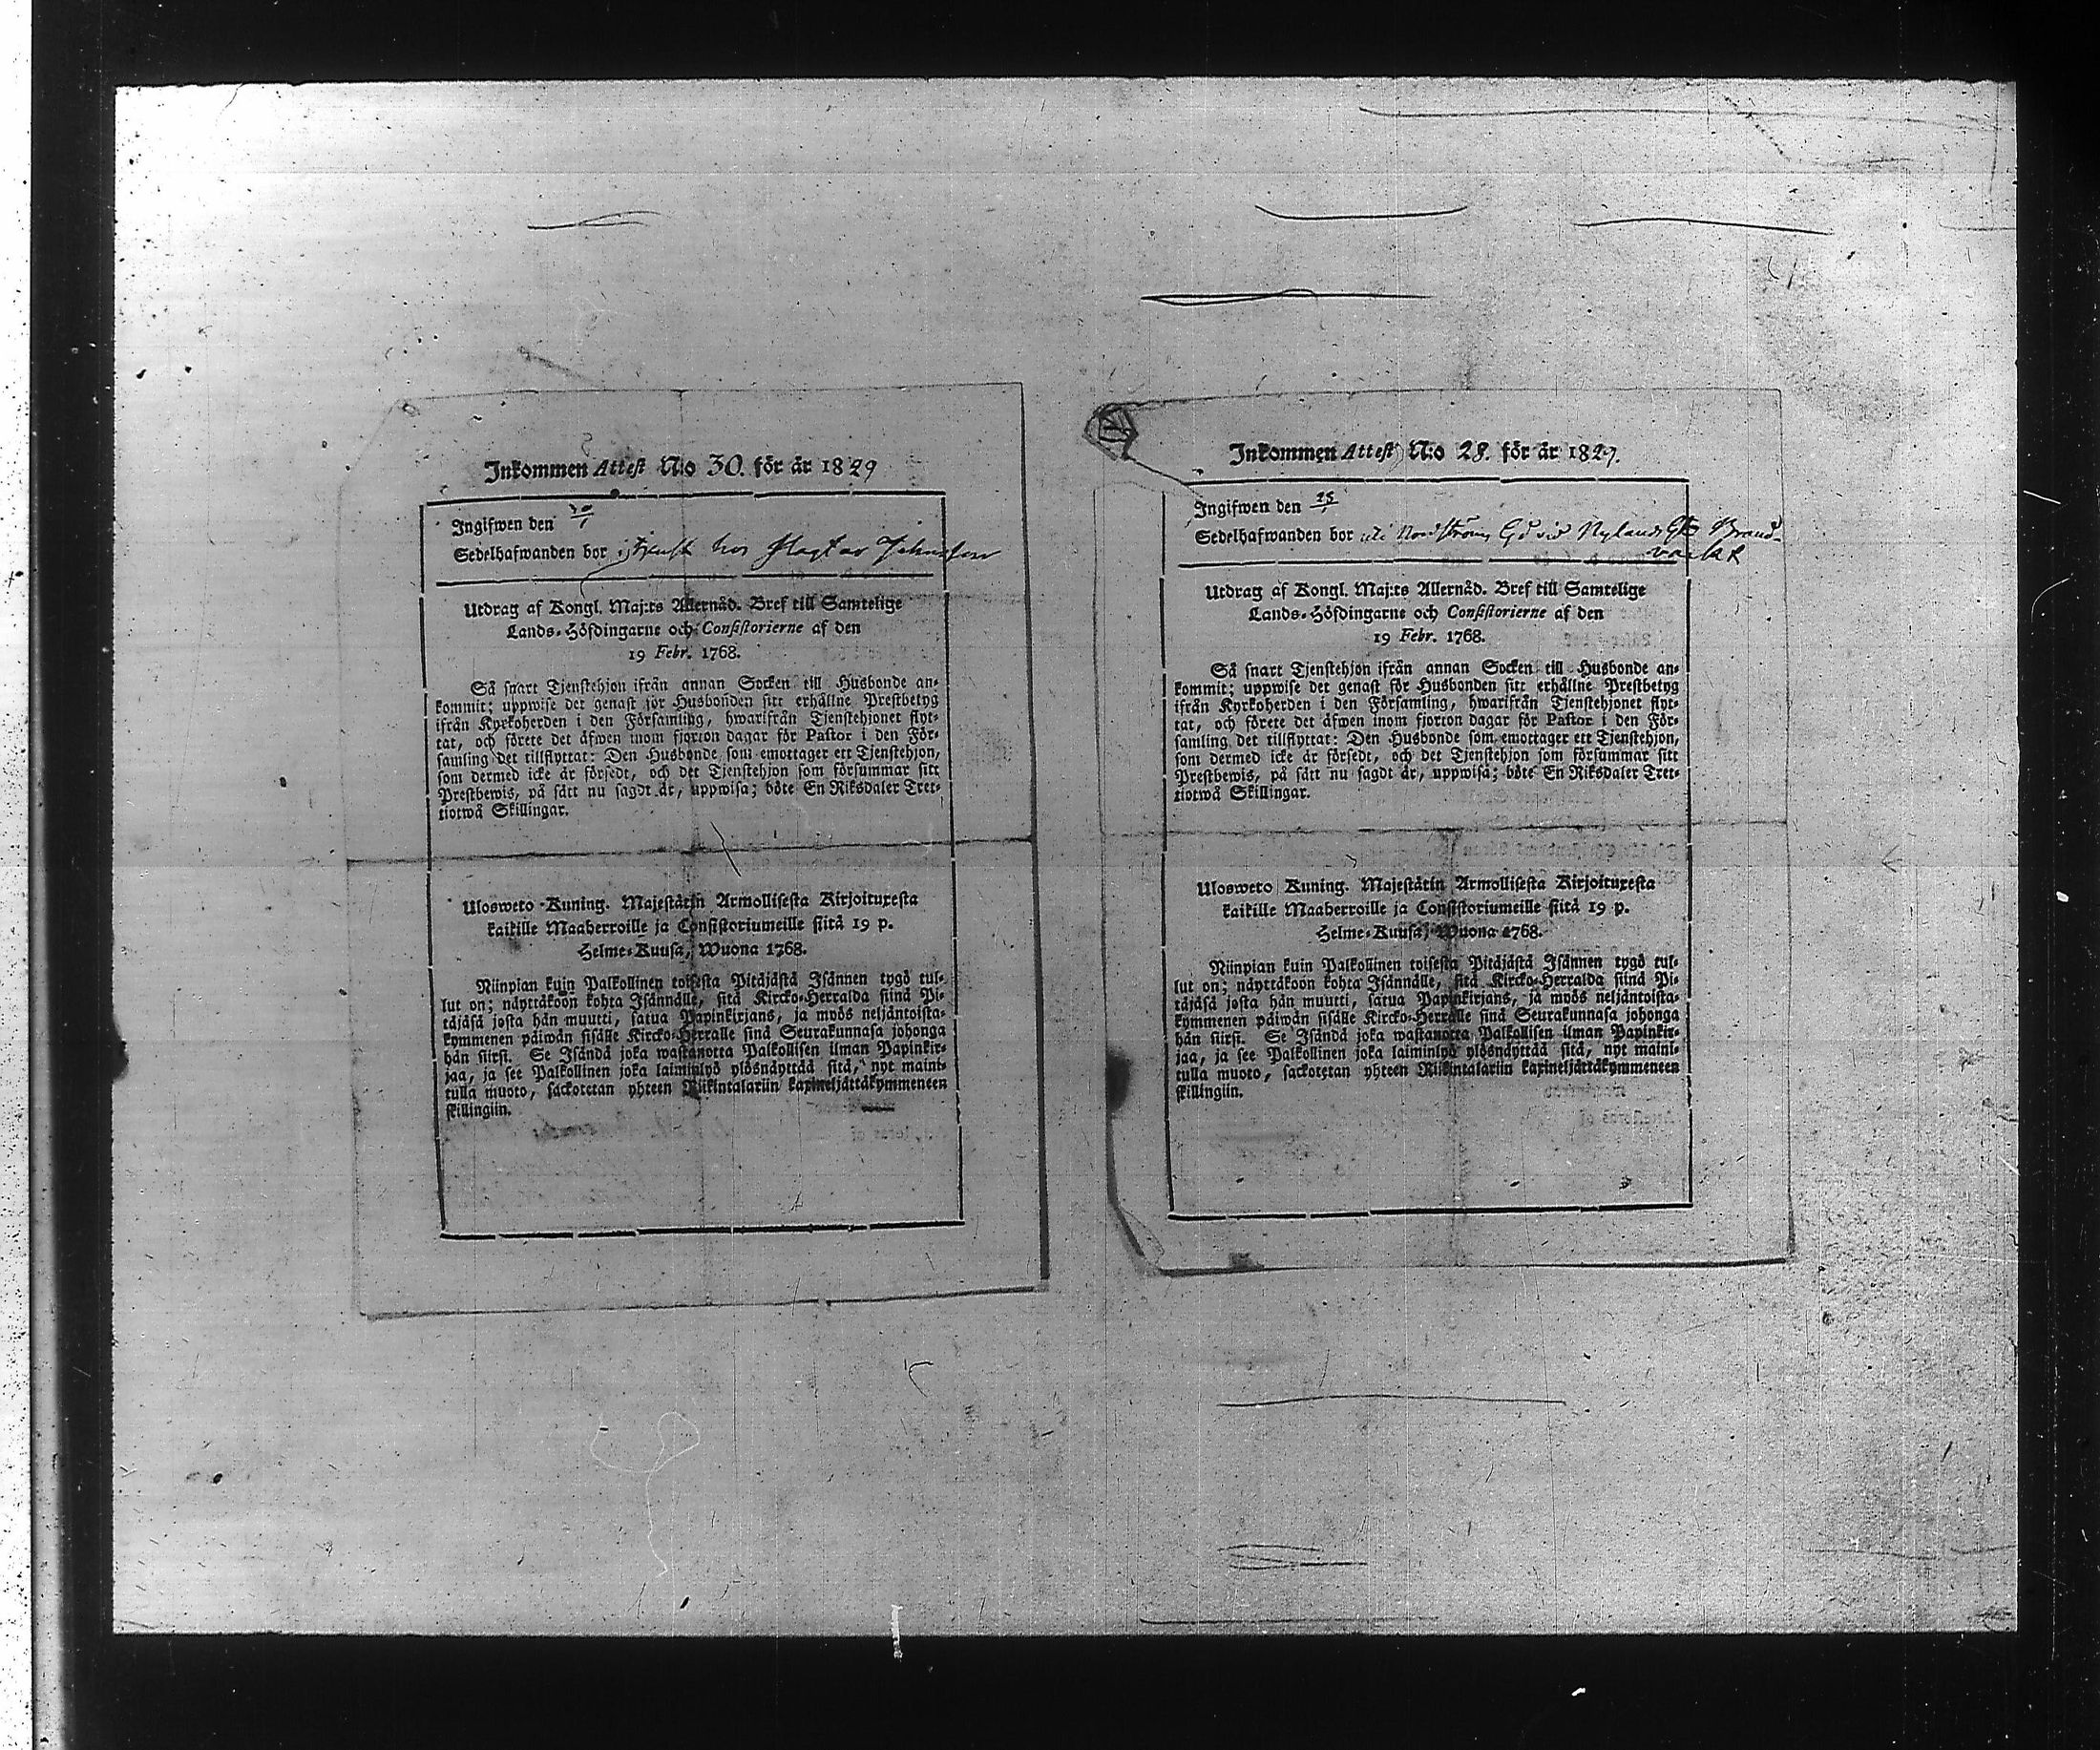 Inkommen Attest N:o 30. för år 1829
Ingifwen den
Sedelhafwanden bor i tjenst hos
Utdrag af Kongl. Maj:ts Allernåd. Bref till Samtelige
Lands-Höfdingarne och Consistorierne af den
19 Febr. 1768.
Så snart Tjenstehjon ifrån annan Socken till Husbonde an-
kommit; uppwise det genast för Husbonden sitt erhållne Prestbetyg
ifrån Kyrkoherden i den Församling, hwarifrån Tjenstehjonet flyt-
tat, och förete det äfwen inom fjorton dagar för Pastor i den För-
samling det tillflyttat: Den Husbonde som emottager ett Tjenstehjon,
som dermed icke är försedt, och det Tjenstehjon som försummar sitt
Prestbewis, på sätt nu sagdt är, uppwisa; böte En Riksdaler Tret-
tiotwå Skillingar.
Ulosweto Kuning. Majestätin Armollisesta Kirjoituxesta
kaikille Maaherroille ja Consistoriumeille siitä 19 p.
Helme-Kuusa, Wuona 1768.
Niinpian kuin Palkollinen toisesta Pitäjästä Isännen tygö tul-
lut on; näyttäköön kohta Isännälle, sitä Kircko-Herralda siinä Pi-
täjäsä josta hän muutti, satua Papinkirjans, ja myös neljäntoista-
kymmenen päiwän sisälle Kircko-Herralle sinä Seurakunnasa johonga
hän siirsi. Se Isändä joka wastanotta Palkollisen ilman Papinkir-
jaa, ja see Palkollinen joka laiminlyö ylösnäyttää sitä, nyt maini-
tulla muoto, sackotetan yhteen Riikintalariin kaxineljättäkymmeneen
skillingiin.
Inkommen Attest N:o 28. för år 1827.
Ingifwen den 25/1
Sedelhafwanden bor uti Nordströms Gd vid Nylands Gts Brand-
vackt
Utdrag af Kongl. Maj:ts Allernåd. Bref till Samtelige
Lands-Höfdingarne och Consistorierne af den
19 Febr. 1768.
Så snart Tjenstehjon ifrån annan Socken till Husbonde an-
kommit; uppwise det genast för Husbonden sitt erhållne Prestbetyg
ifrån Kyrkoherden i den Församling, hwarifrån Tjenstehjonet flyt-
tat, och förete det äfwen inom fjorton dagar för Pastor i den För-
samling det tillflyttat: Den Husbonde som emottager ett Tjenstehjon,
som dermed icke är försedt, och det Tjenstehjon som försummar sitt
Prestbewis, på sätt nu sagdt är, uppwisa; böte En Riksdaler Tret-
tiotwå Skillingar.
Ulosweto Kuning. Majestätin Armollisesta Kirjoituxesta
kaikille Maaherroille ja Consistoriumeille siitä 19 p.
Helme-Kuusa, Wuona 1768.
Niinpian kuin Palkollinen toisesta Pitäjästä Isännen tygö tul-
lut on; näyttäköön kohta Isännälle, sitä Kircko-Herralda siinä Pi-
täjäsä josta hän muutti, satua Papinkirjans, ja myös neljäntoista-
kymmenen päiwän sisälle Kircko-Herralle sinä Seurakunnasa johonga
hän siirsi. Se Isändä joka wastanotta Palkollisen ilman Papinkir-
jaa, ja see Palkollinen joka laiminlyö ylösnäyttää sitä, nyt maini-
tulla muoto, sackotetan yhteen Riikintalariin kaxineljättäkymmeneen
skillingiin.